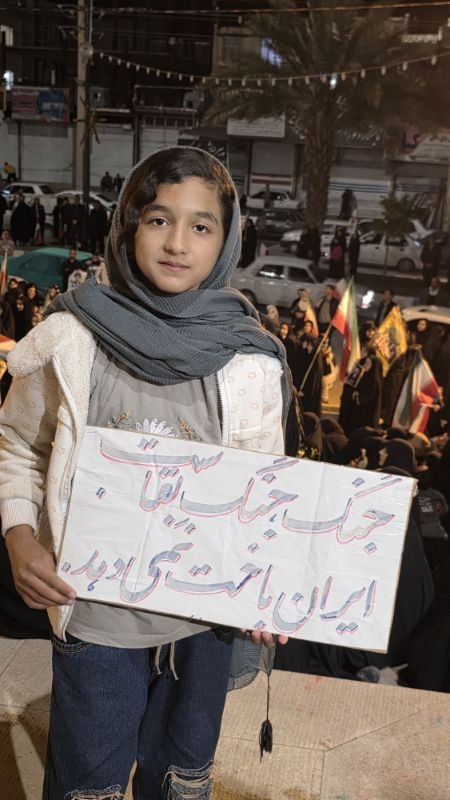 جنگ، جنگ بقاست
ایران باخت نمی دهد.